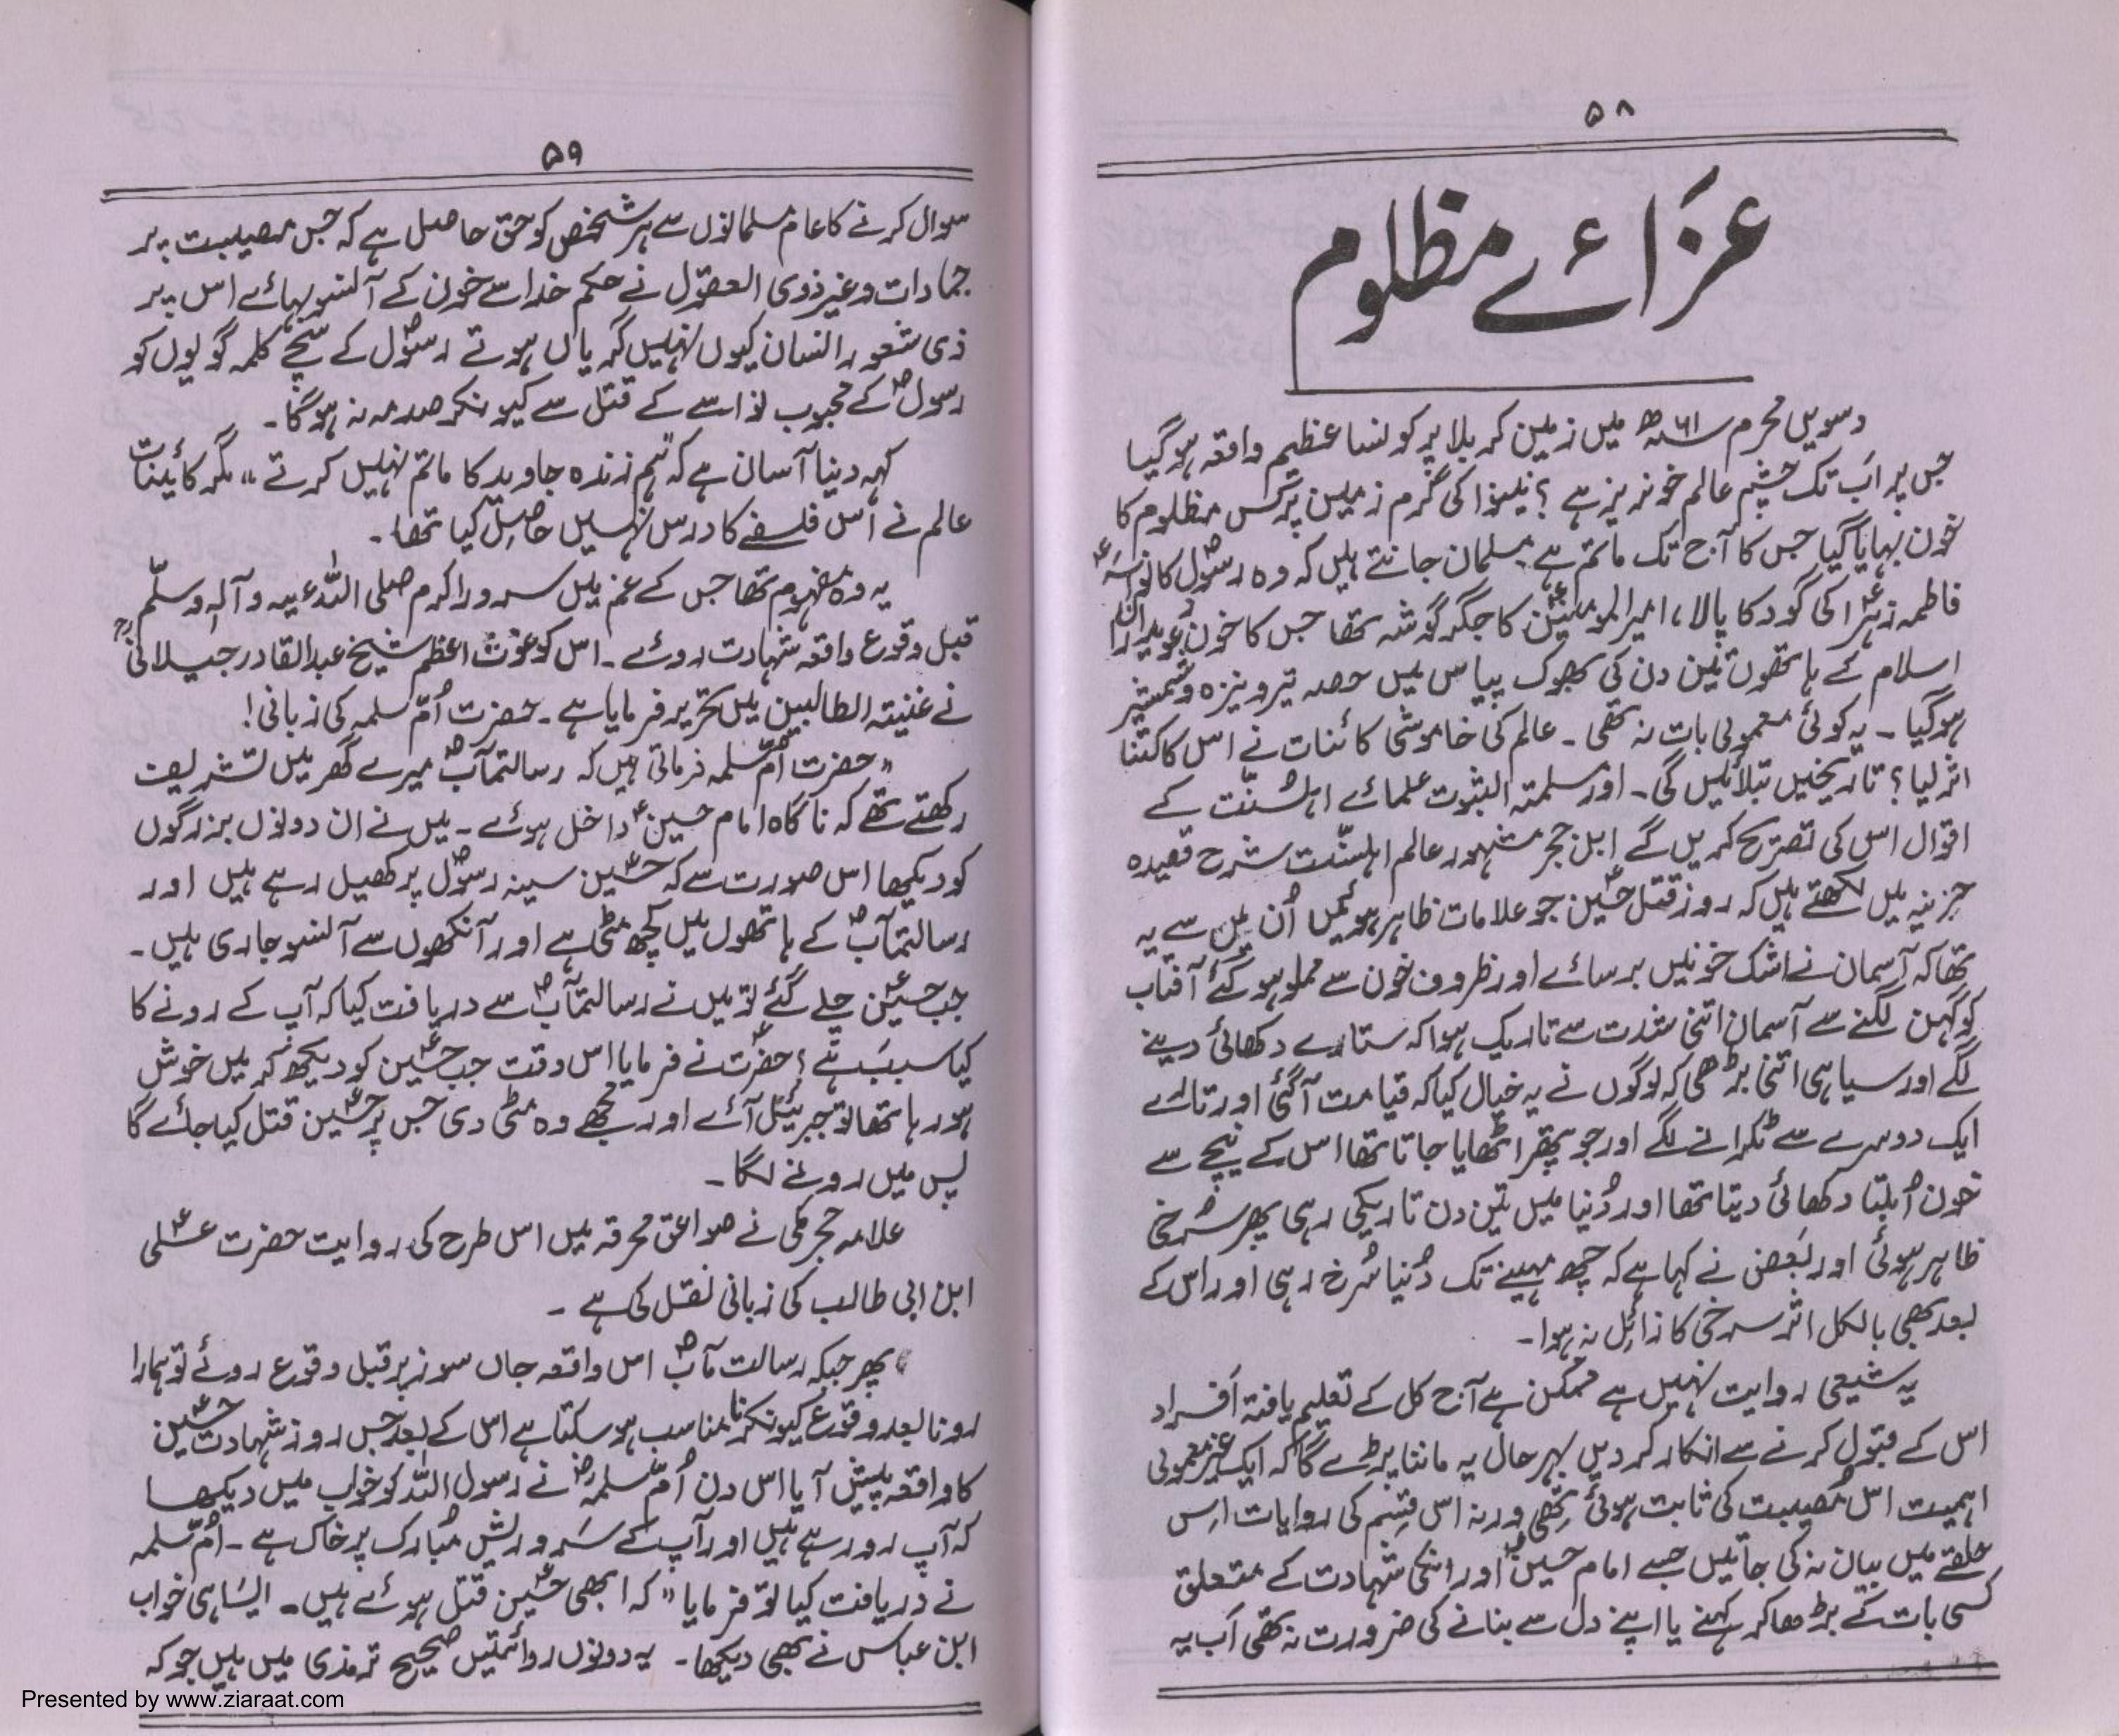 ۵۸
عزائے مظلوم
دسویں محرم ۶۱ھ میں زمین کربلا پر کونسا عظیم واقعہ ہوگیا
جس پر اب تک چشم عالم خونریز ہے ؟ نینوا کی گرم زمین پر کس مظلوم کا
خون بہایا گیا جس کا آج تک ماتم ہے مسلمان جانتے ہیں کہ وہ رسولؐ کا نواسہ
فاطمہ زہراؑ کی گود کا پالا، امیرالمومنینؑ کا جگر گوشہ تھا جس کا خون عویداران
اسلام کے ہاتھوں تین دن کی بھوک پیاس میں حصہ تیرو نیزہ و شمشیر
ہوگیا ۔ یہ کوئی معمولی بات نہ تھی ۔ عالم کی خاموشی کائنات نے اس کا کتنا
اثر لیا؟ تاریخیں بتلائیں گی ۔ اور مسلمتہ الثبوت علمائے اہلسُنّت کے
اقوال اس کی تصریح کریں گے ابن حجر مشہور عالم اہلسنّت شرح قصیدہ
میں لکھتے ہیں کہ روز قتل حسینؑ جو علامات ظاہر ہوئیں اُن میں سے یہ
تھا کہ آسمان نے اشک خونیں برسائے اور ظروف خون سے مملو ہو گئے آفتاب
کو گہن لگنے سے آسمان اتنی شدت سے تاریک ہوا کہ ستارے دکھائی دینے
لگے اور سیاہی اتنی بڑھی کہ لوگوں نے یہ خیال کیا کہ قیامت آگئی اور تارے
ایک دوسرے سے ٹکرانے لگے اور جو پتھر اٹھایا جاتا تھا اس کے نیچے سے
خون اُبلتا دکھائی دیتا تھا اور دُنیا میں تین دن تاریکی رہی پھر سُرخی
ظاہر ہوئی اور بعض نے کہا ہے کہ چھ مہینے تک دُنیا سُرخ رہی اور اس کے
بعد بھی بالکل اثر سرخی کا زائل نہ ہوا ۔
یہ شیعی روایت نہیں ہے ممکن ہے آج کل کے تعلیم یافتہ اَفراد
اس کے قبول کرنے سے انکار کر دیں بہر حال یہ ماننا پڑے گا کہ ایک غیر معمولی
اہمیت اس مُصیبت کی ثابت ہوئی تھی ورنہ اس قِسم کی روایات اِس
حلقے میں بیان نہ کی جاتیں جسے امام حسینؑ اور انکی شہادت کے متعلق
کسی بات کے بڑھا کر کہنے یا اپنے دل سے بنانے کی ضرورت نہ تھی اَب یہ
۵۹
سوال کرنے کا عام مسلمانوں سے ہر شخص کو حق حاصل ہے کہ جس مصیبت پر
جمادات و غیر ذوی العقول نے حکم خدا سے خون کے آنسو بہائے اس پر
ذی شعور انسان کیوں نہیں گریاں ہوتے رسولؐ کے سچے کلمہ گویوں کو
رسولؐ کے محبوب نواسے کے قتل سے کیونکر صدمہ نہ ہوگا ۔
کہہ دینا آسان ہے کہ "ہم زندہ جاوید کا ماتم نہیں کرتے" مگر کائنات
عالم نے اس فلسفے کا درس نہیں حاصل کیا تھا ۔
یہ وہ تھا جس کے غم میں سرور اکرم صلی اللہ علیہ وآلہٖ وسلّم
قبل وقوع واقعہ شہادت روئے ۔ اس کو غوث اعظم شیخ عبدالقادر جیلانیؒ
نے غنیتہ الطالبین میں تحریر فرمایا ہے ۔ حضرت اُمّ سلمہ کی زبانی!
"حضرت اُمّ سلمہ فرماتی ہیں کہ رسالتمآبؐ میرے گھر میں تشریف
رکھتے تھے کہ ناگاہ امام حسینؑ داخل ہوئے ۔ میں نے ان دونوں بزرگوں
کو دیکھا اس صورت سے کہ حسینؑ سینہ رسولؐ پر کھیل رہے ہیں اور
رسالتمآبؐ کے ہاتھوں میں کچھ مٹی ہے اور آنکھوں سے آنسو جاری ہیں ۔
جب حسینؑ چلے گئے تو میں نے رسالتمآبؐ سے دریافت کیا کہ آپ کے رونے کا
کیا سبب ہے ؟ حضرتؐ نے فرمایا اس وقت جب حسینؑ کو دیکھ کر میں خوش
ہو رہا تھا تو جبرئیل آئے اور مجھے وہ مٹی دی جس پر حسینؑ قتل کیا جائے گا
پس میں رونے لگا ۔
علامہ حجر مکی نے صواعق محرقہ میں اس طرح کی روایت حضرت علیؑ
ابن ابی طالب کی زبانی نقل کی ہے ۔
پھر جبکہ رسالت مآبؐ اس واقعہ جاں سوز پر قبل وقوع روئے تو ہمارا
رونا بعد وقوع کیونکر نامناسب ہو سکتا ہے اس کے بعد جس روز شہادت حسینؑ
کا واقعہ پیش آیا اس دن اُمّ سلمہؓ نے رسول اللہ کو خواب میں دیکھا
کہ آپ رو رہے ہیں اور آپ کے سَر و ریش مُبارک پر خاک ہے ۔ اُمّ سلمہ
نے دریافت کیا تو فرمایا "کہ ابھی حسینؑ قتل ہوئے ہیں ۔ ایسا ہی خواب
ابن عباس نے بھی دیکھا ۔ یہ دونوں روائتیں صحیح ترمذی میں ہیں جو کہ
Presented by www.ziaraat.com